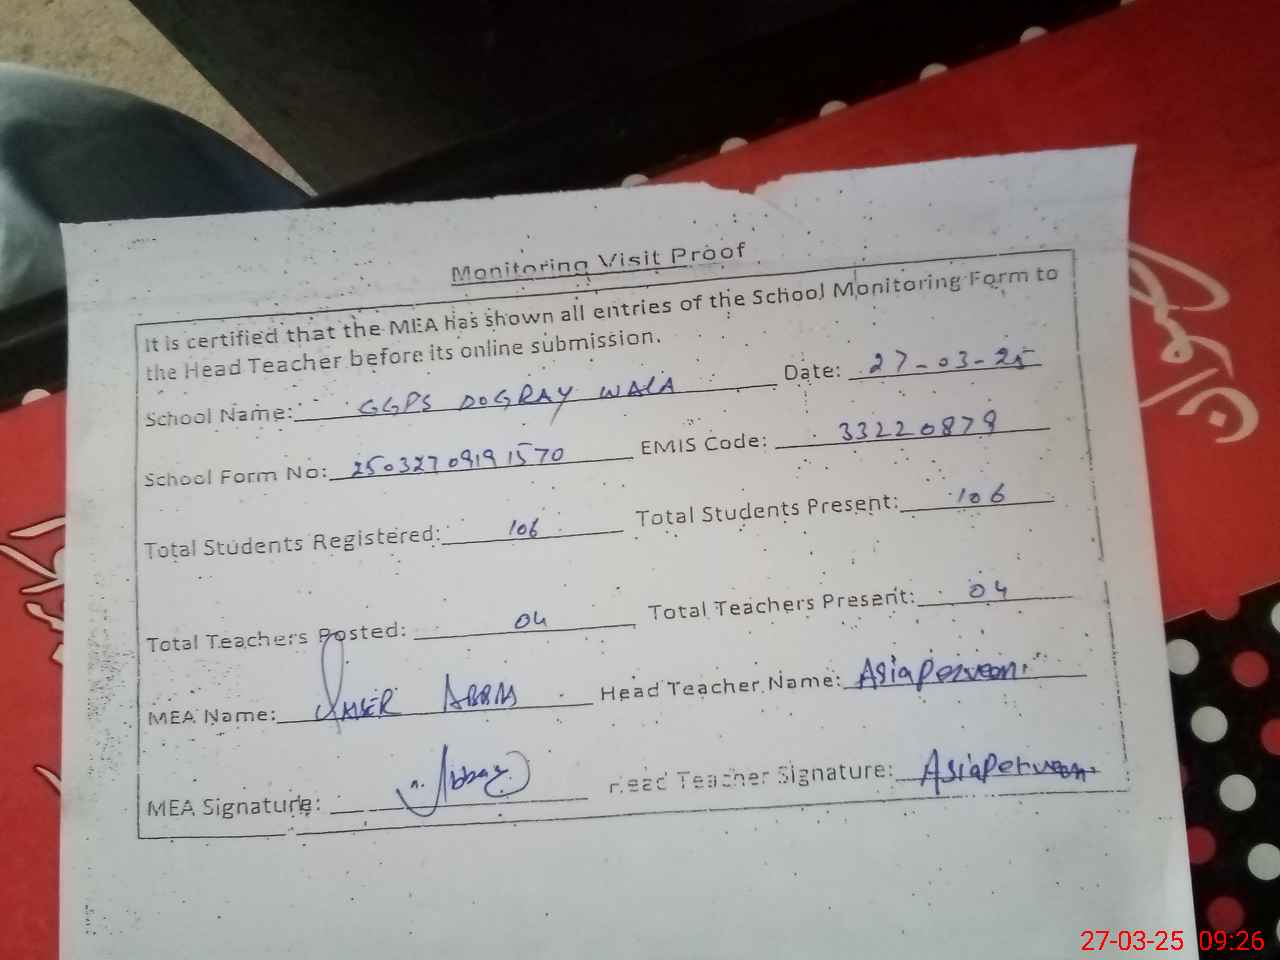 Monitoring Visit Proof
It is certified that the MEA has shown all entries of the School Monitoring Form to
the Head Teacher before its online submission.
School Name: GGPS DOGRAY WALA Date: 27-03-25
School Form No: 25032709191570 EMIS Code: 33220879
Total Students Registered: 106 Total Students Present: 106
Total Teachers Posted: 04 Total Teachers Present: 04
MEA Name: Head Teacher Name: Asia Perveen
MEA Signature: Head Teacher Signature: Asia Perveen
27-03-25 09:26